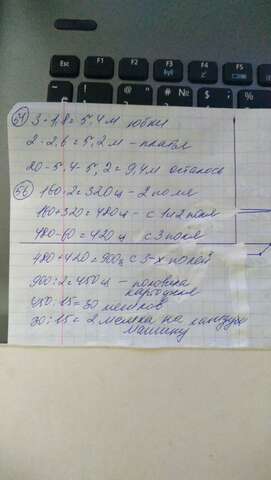 Esc F1 F2 F3 F4
54 3·1,8=5,4м юбки
2·2,6=5,2м - платья
20-5,4-5,2=9,4м осталось
56 160·2=320ц - 2 поле
160+320=480ц - с 1и2 поля
480-60=420ц с 3 поля
480+420=900ц с 3-х полей
900:2=450ц - половина
картофеля
450:15=30 мешков
30:15=2 мешка на каждую
машину